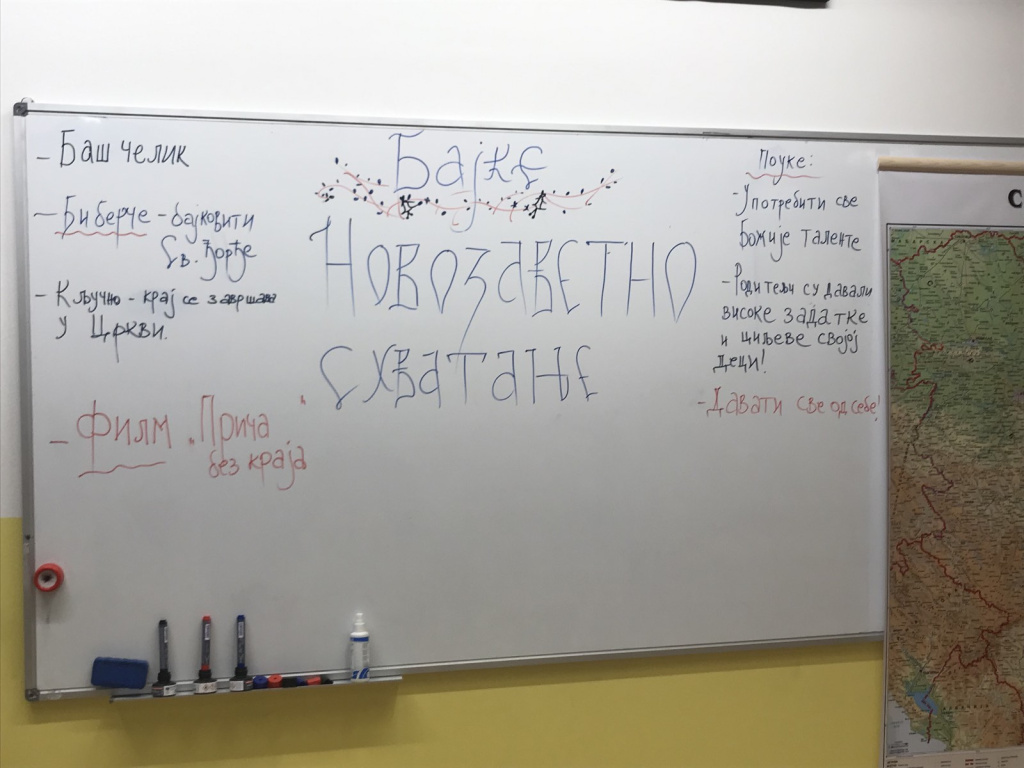 Бајке
Новозаветно
схватање
- Баш челик
- Биберче - бајковити
Св. Ђорђе
- Кључно - крај се завршава
у Цркви.
- Филм „Прича
без краја"
Поуке:
- Употребити све
Божије таленте
- Родитељи су давали
високе задатке
и циљеве својој
деци!
- Давати све од себе!
С